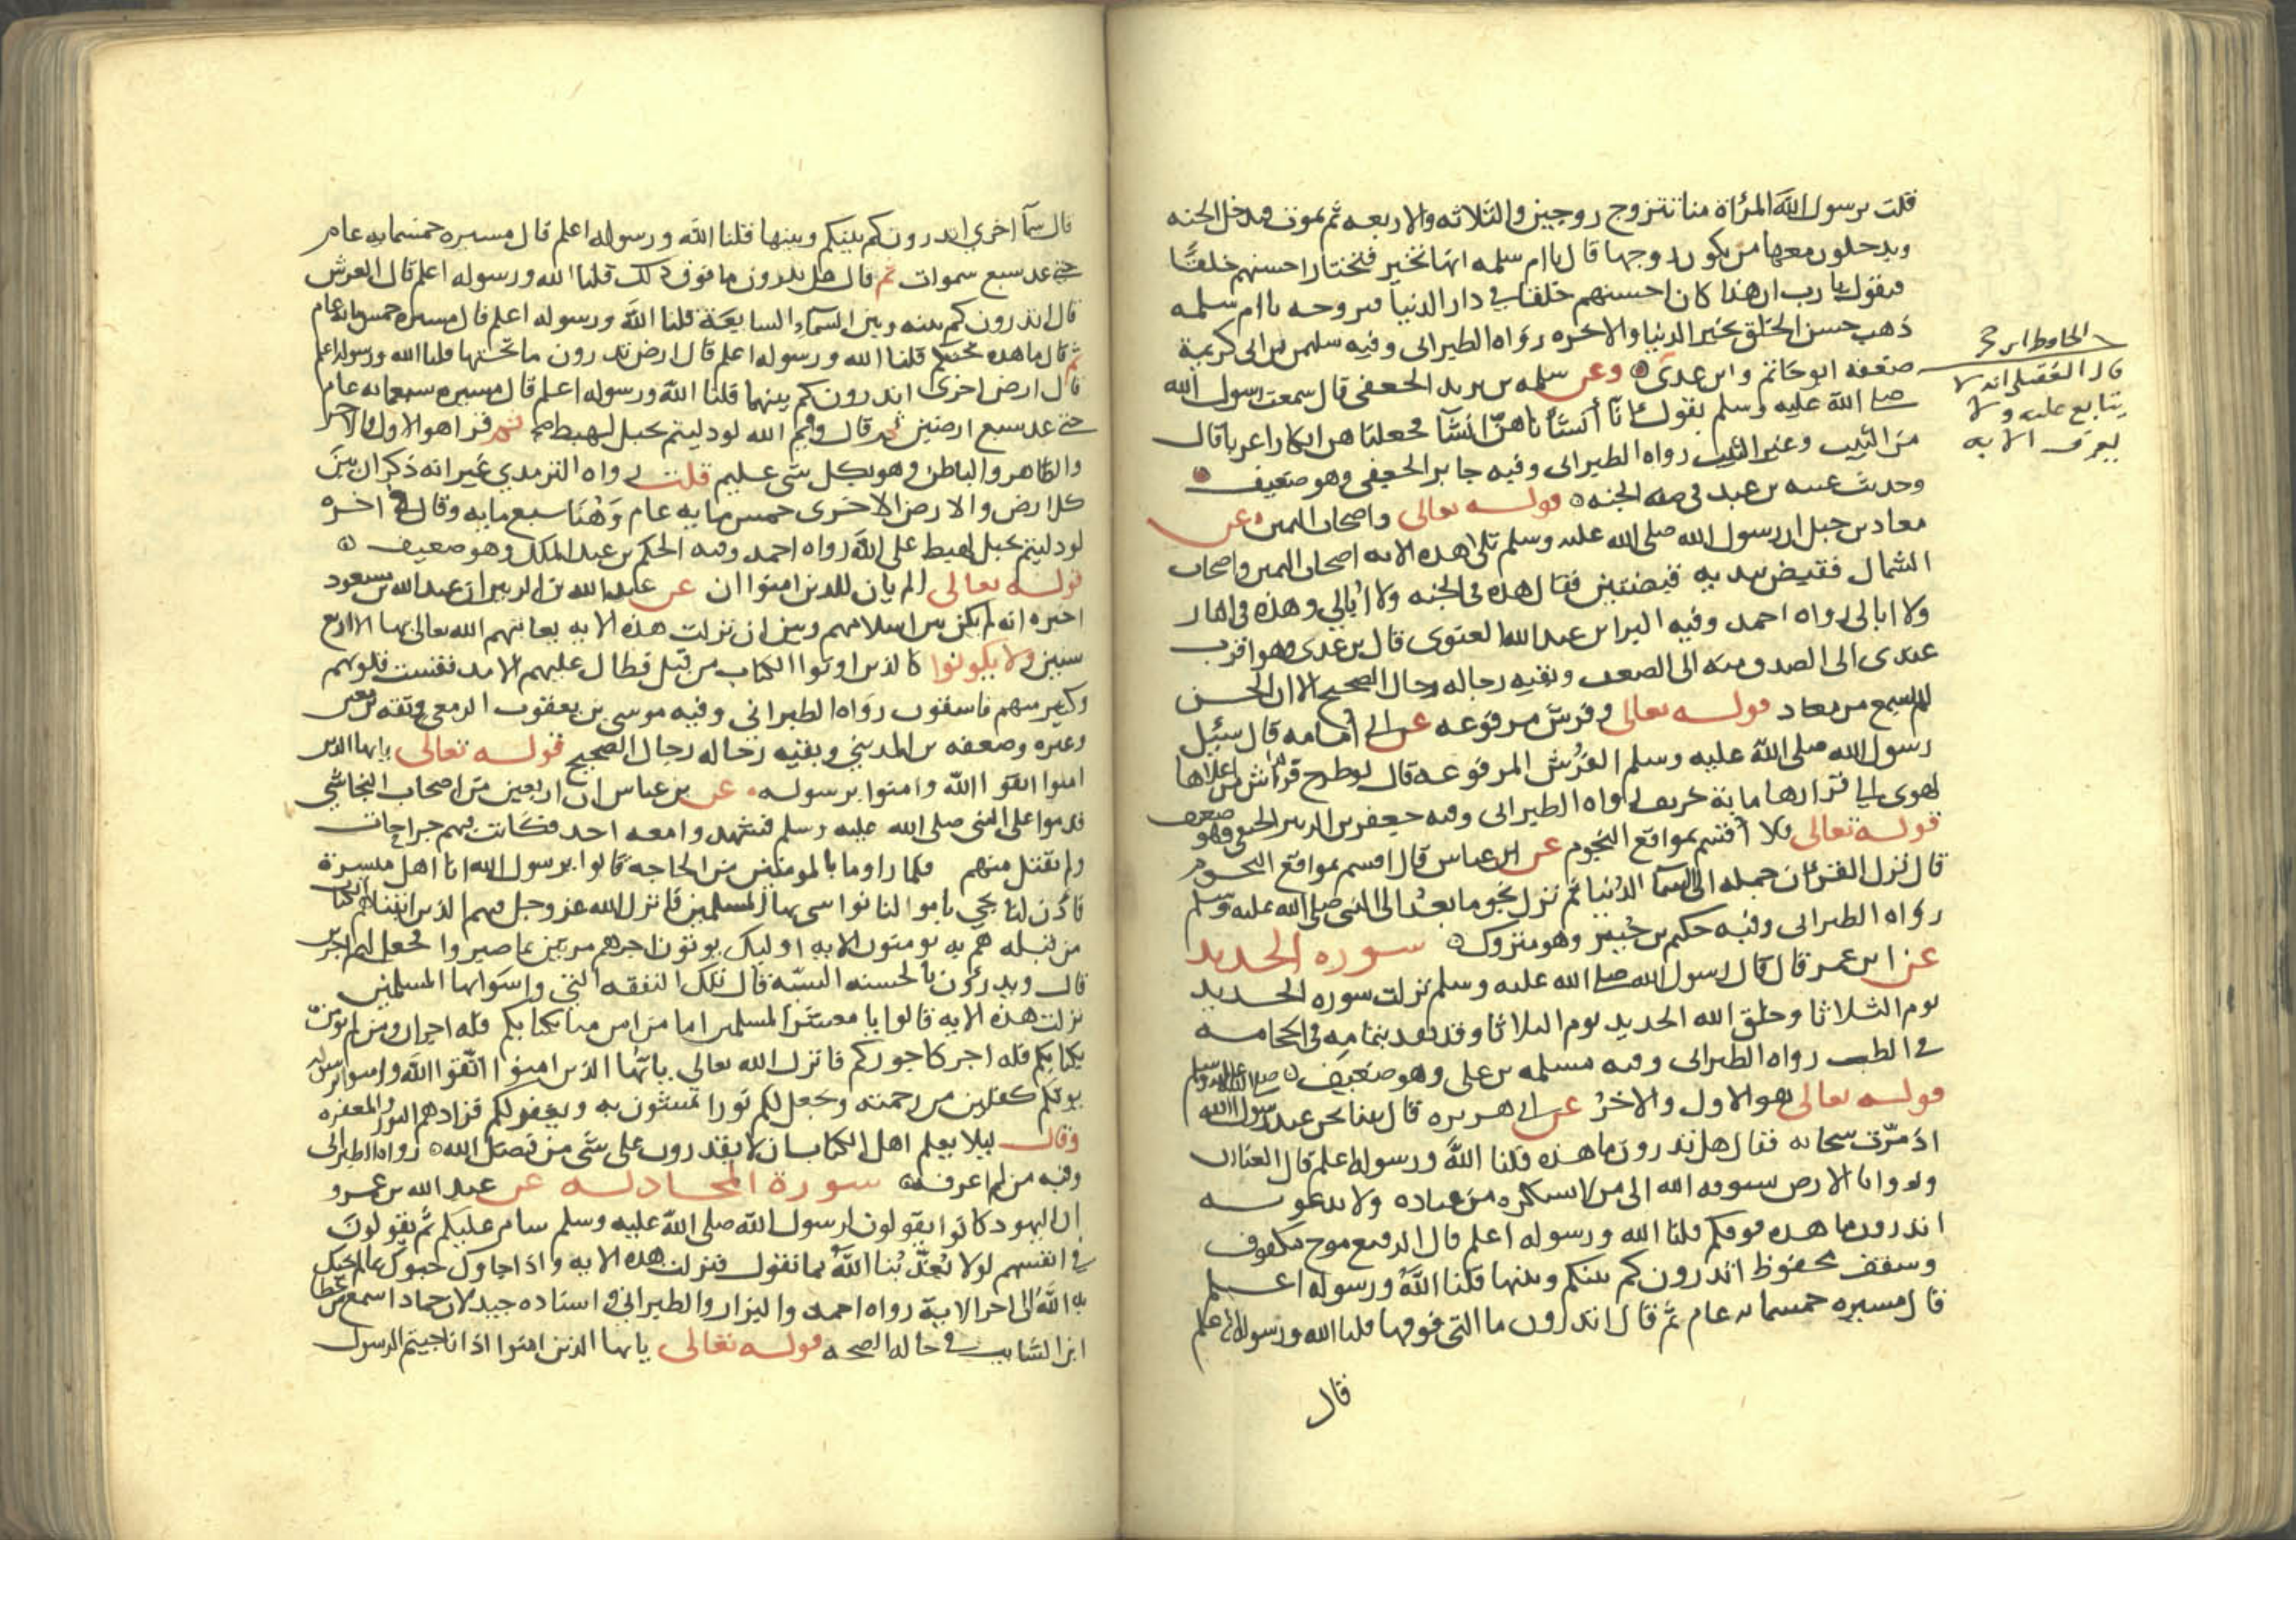 قلت يرسول الله المرأة منا تتزوج زوجين والثلاثه والاربعه ثم تموت فتدخل الجنه
ويدخلون معها من يكون زوجها قال يا ام سلمه انها تخير فتختار احسنهم خلقا
فيقول يا رب ان هذا كان احسنهم خلقا في دار الدنيا فزوجنيه يا ام سلمه
ذهب حسن الخلق بخير الدنيا والاخره رواه الطبراني وفيه سليمن بن ابي كريمة
ضعفه ابو حاتم وابن عدي وعن سلمه بن يزيد الجعفي قال سمعت رسول الله
صلى الله عليه وسلم يقول انا أنشأناهن انشآ فجعلناهن ابكارا عربا قال
من الثيب وغير الثيب رواه الطبراني وفيه جابر الجعفي وهو ضعيف
وحديث عتبه بن عبد في صفه الجنه قوله تعالى واصحاب اليمين عن
معاذ بن جبل ان رسول الله صلى الله عليه وسلم تلى هذه الايه اصحاب اليمين واصحاب
الشمال فقبض بيديه قبضتين فقال هذه في الجنه ولا ابالي وهذه في النار
ولا ابالي رواه احمد وفيه البرا بن عبد الله الغنوي قال بن عدي وهو اقرب
عندي الى الصدق منه الى الضعف وبقيه رجاله رجال الصحيح الا ان الحسن
لم يسمع من معاذ قوله تعالى وفرش مرفوعه عن ابي امامه قال سئل
رسول الله صلى الله عليه وسلم الفرش المرفوعه قال لو طرح فراش من اعلاها
لهوى الى قرارها ماية خريف رواه الطبراني وفيه جعفر بن الزبير الحنفي وهو ضعيف
قوله تعالى فلا أقسم بمواقع النجوم عن ابن عباس قال اقسم بمواقع النجوم
قال نزل القرآن جمله الى السما الدنيا ثم نزل نجوما بعد الى النبي صلى الله عليه وسلم
رواه الطبراني وفيه حكيم بن جبير وهو متروك سوره الحديد
عن ابن عمر قال قال رسول الله صلى الله عليه وسلم نزلت سوره الحديد
يوم الثلاثا وخلق الله الحديد يوم الثلاثا وقد تقدم بتمامه في الحجامه
في الطب رواه الطبراني وفيه مسلمه بن علي وهو ضعيف
قوله تعالى هو الاول والاخر عن ابي هريره قال بينا نحن عند رسول الله صلى الله عليه وسلم
اذ مرت سحابه فقال هل تدرون ما هذه قلنا الله ورسوله اعلم قال العنان
وروايا الارض يسوقه الله الى من لا يشكره من عباده ولا يدعونه
اتدرون ما هذه فوقكم قلنا الله ورسوله اعلم قال الرقيع موج مكفوف
وسقف محفوظ اتدرون كم بينكم وبينها قلنا الله ورسوله اعلم
قال مسيره خمسمايه عام ثم قال اتدرون ما التي فوقها قلنا الله ورسوله اعلم
قال
قال العقيلي انه لا
يتابع عليه ولا
يعرف الا به
قال سمآ اخرى اتدرون كم بينكم وبينها قلنا الله ورسوله اعلم قال مسيره خمسمايه عام
حتى عد سبع سموات ثم قال هل تدرون ما فوق ذلك قلنا الله ورسوله اعلم قال العرش
قال اتدرون كم بينه وبين السمآء السابعة قلنا الله ورسوله اعلم قال مسيره خمسمايه عام
ثم قال ما هذه تحتكم قلنا الله ورسوله اعلم قال ارض تدرون ما تحتها قلنا الله ورسوله اعلم
قال ارض اخرى اتدرون كم بينهما قلنا الله ورسوله اعلم قال مسيره سبعمايه عام
حتى عد سبع ارضين ثم قال وايم الله لو دليتم بحبل لهبط ثم قرا هو الاول والاخر
والظاهر والباطن وهو بكل شى عليم قلت رواه الترمذي غير انه ذكر ان بين
كل ارض والارض الاخرى خمس مايه عام وهنا سبع مايه وقال في اخره
لو دليتم بحبل لهبط على الله رواه احمد وفيه الحكم بن عبد الملك وهو ضعيف
قوله تعالى الم يان للذين امنوا ان عن عبد الله بن الزبير ان عبد الله بن مسعود
اخبره انه لم يكن بين اسلامهم وبين ان نزلت هذه الايه يعاتبهم الله تعالى بها الا اربع
سنين ولا يكونوا كالذين اوتوا الكتاب من قبل فطال عليهم الامد فقست قلوبهم
وكثير منهم فاسقون رواه الطبراني وفيه موسى بن يعقوب الزمعي وثقه بن معين
وغيره وضعفه بن المديني وبقيه رجاله رجال الصحيح قوله تعالى يايها الذين
امنوا اتقوا الله وامنوا برسوله عن بن عباس ان اربعين من اصحاب النجاشي
قدموا على النبي صلى الله عليه وسلم فشهدوا معه احد فكانت فيهم جراحات
ولم يقتل منهم فلما راوا ما بالمومنين من الحاجه قالوا يرسول الله انا اهل ميسرة
فأذن لنا نجي باموالنا نواسي بها المسلمين فانزل الله عز وجل فيهم الذين اتيناهم الكتاب
من قبله هم به يومنون الايه اوليك يوتون اجرهم مرتين بما صبروا فجعل لهم اجرين
قال ويدرؤن بالحسنه السيئه قال تلك النفقه التي واسوا بها المسلمين
نزلت هذه الايه قالوا يا معشر المسلمين اما من امن منا بكتابكم فله اجران ومن لم يومن
بكتابكم فله اجر كاجوركم فانزل الله تعالى يايها الذين امنوا اتقوا الله وامنوا برسوله
يوتكم كفلين من رحمته ويجعل لكم نورا تمشون به ويغفر لكم فزادهم النور والمغفره
وقال ليلا يعلم اهل الكتاب ان لا يقدرون على شى من فضل الله رواه الطبراني
وفيه من لم اعرفه سورة المجادله عن عبد الله بن عمرو
ان اليهود كانوا يقولون لرسول الله صلى الله عليه وسلم سام عليكم ثم يقولون
في انفسهم لولا يعذبنا الله بما نقول فنزلت هذه الايه واذا جاوك حيوك بما لم يحيك
به الله الى اخر الاية رواه احمد والبزار والطبراني واسناده جيد لان حماد اسمع من عطا
ابن السايب في حاله الصحه قوله تعالى يايها الذين امنوا اذا ناجيتم الرسول